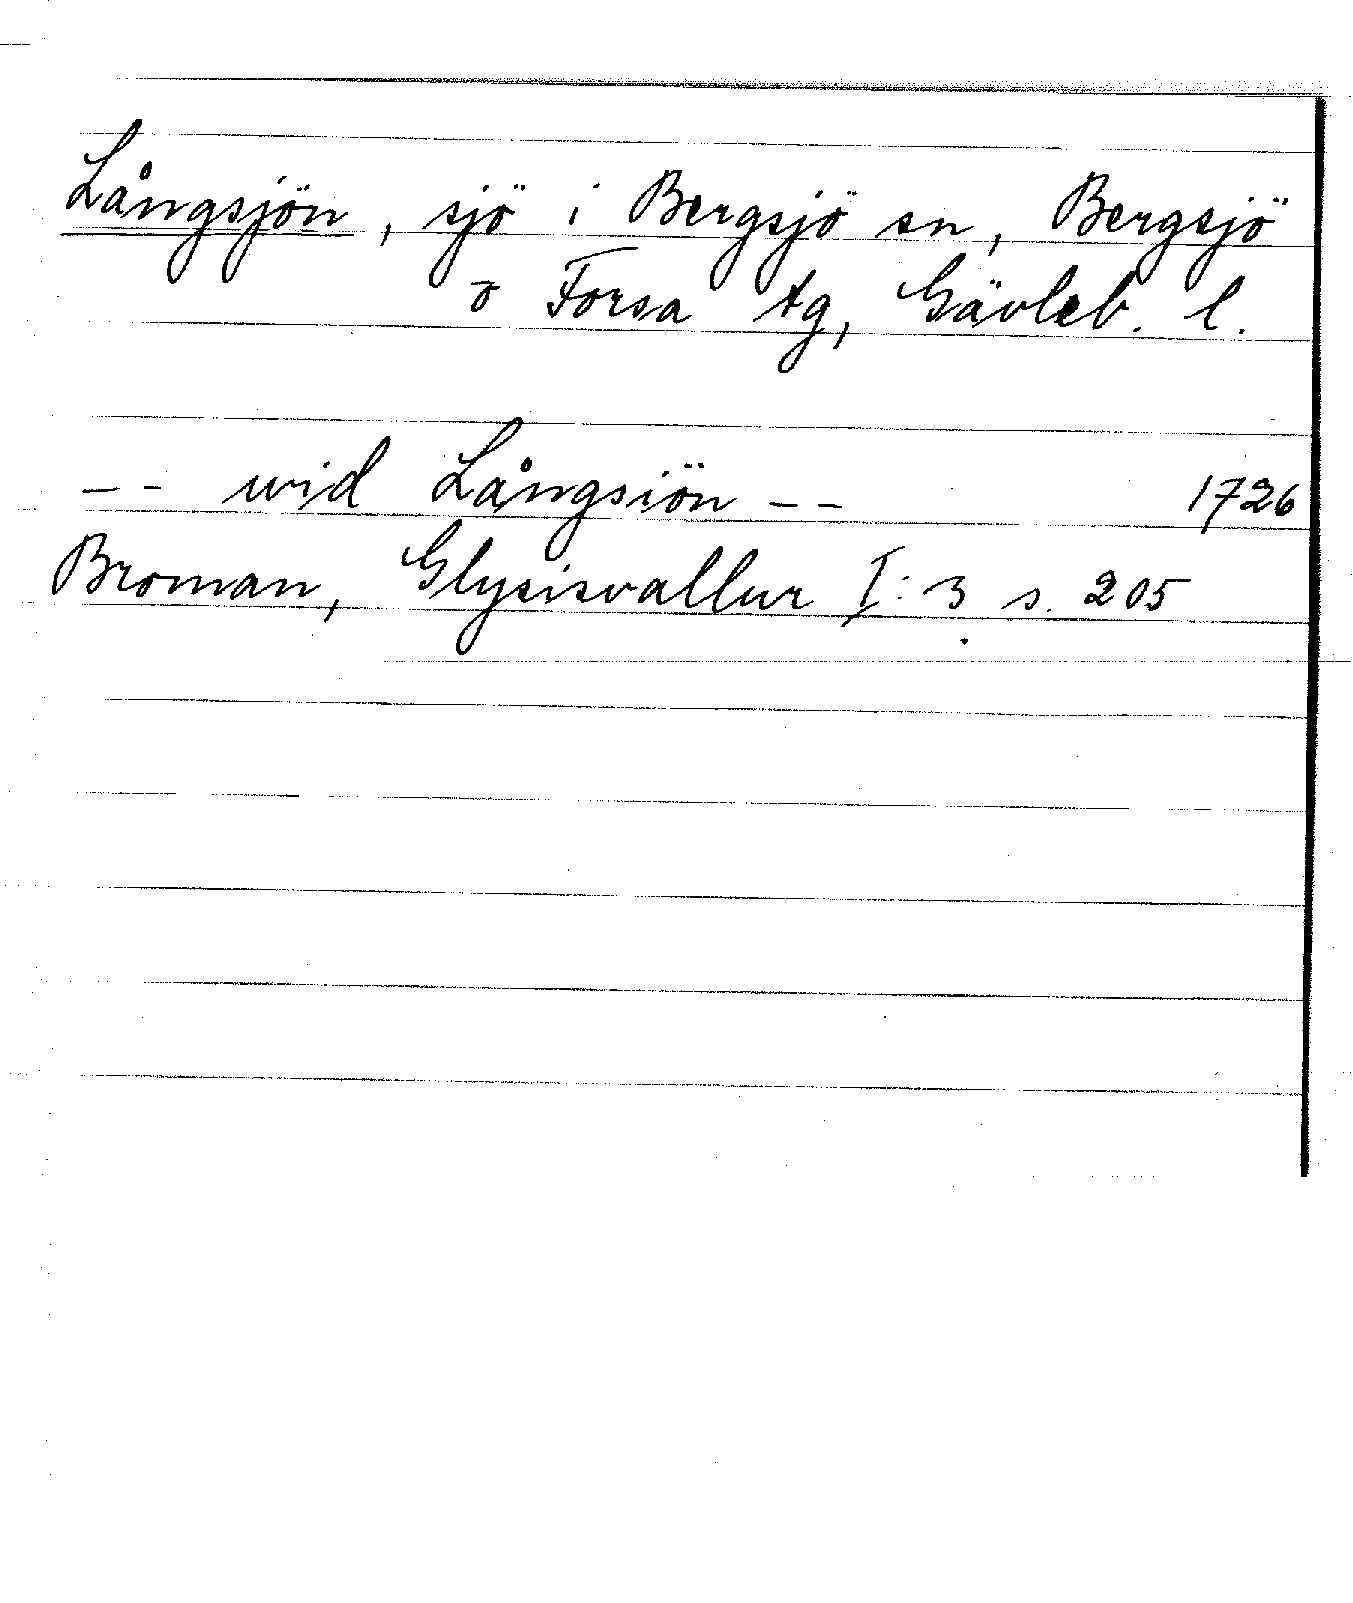 Långsjön, sjö i Bergsjö sn, Bergsjö
o Forsa tg, Gävleb. l.
-- wid Långsiön -- 1726
Broman, Glysisvallur I:3 s. 205